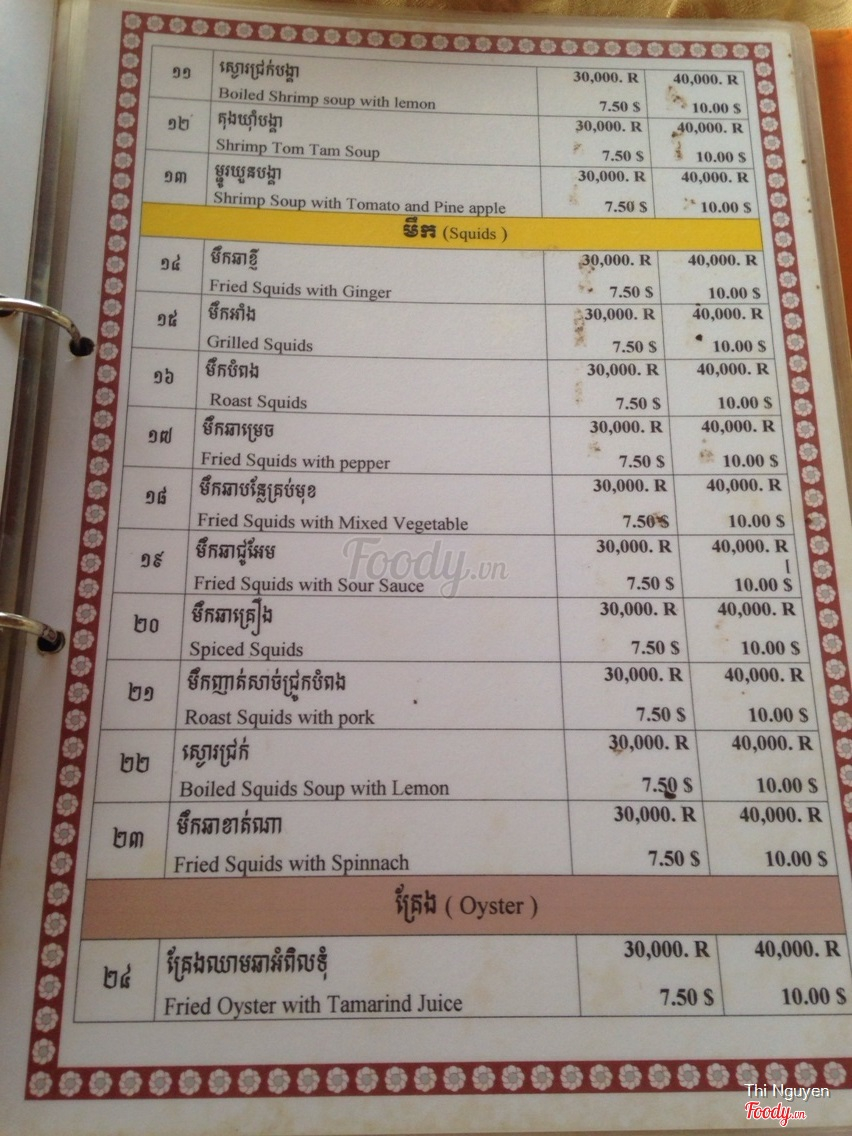 ១១
ស្ងោរជ្រក់បង្គា
30,000. R 40,000. R
Boiled Shrimp soup with lemon
7.50 $ 10.00 $
១២
តុងយ៉ាំបង្គា
30,000. R 40,000. R
Shrimp Tom Tam Soup
7.50 $ 10.00 $
១៣
ម្ជូរយួនបង្គា
30,000. R 40,000. R
Shrimp Soup with Tomato and Pine apple
7.50 $ 10.00 $
មឹក (Squids )
១៤
មឹកឆាខ្ញី
30,000. R 40,000. R
Fried Squids with Ginger
7.50 $ 10.00 $
១៥
មឹកអាំង
30,000. R 40,000. R
Grilled Squids
7.50 $ 10.00 $
១៦
មឹកបំពង
30,000. R 40,000. R
Roast Squids
7.50 $ 10.00 $
១៧
មឹកឆាម្រេច
30,000. R 40,000. R
Fried Squids with pepper
7.50 $ 10.00 $
១៨
មឹកឆាបន្លែគ្រប់មុខ
30,000. R 40,000. R
Fried Squids with Mixed Vegetable
7.50 $ 10.00 $
១៩
មឹកឆាជូអែម
30,000. R 40,000. R
Fried Squids with Sour Sauce
7.50 $ 10.00 $
២០
មឹកឆាគ្រឿង
30,000. R 40,000. R
Spiced Squids
7.50 $ 10.00 $
២១
មឹកញាត់សាច់ជ្រូកបំពង
30,000. R 40,000. R
Roast Squids with pork
7.50 $ 10.00 $
២២
ស្ងោរជ្រក់
30,000. R 40,000. R
Boiled Squids Soup with Lemon
7.50 $ 10.00 $
២៣
មឹកឆាខាត់ណា
30,000. R 40,000. R
Fried Squids with Spinnach
7.50 $ 10.00 $
គ្រែង ( Oyster )
២៤
គ្រែងឈាមឆាអំពិលទុំ
30,000. R 40,000. R
Fried Oyster with Tamarind Juice
7.50 $ 10.00 $
Foody.vn
Thi Nguyen
Foody.vn